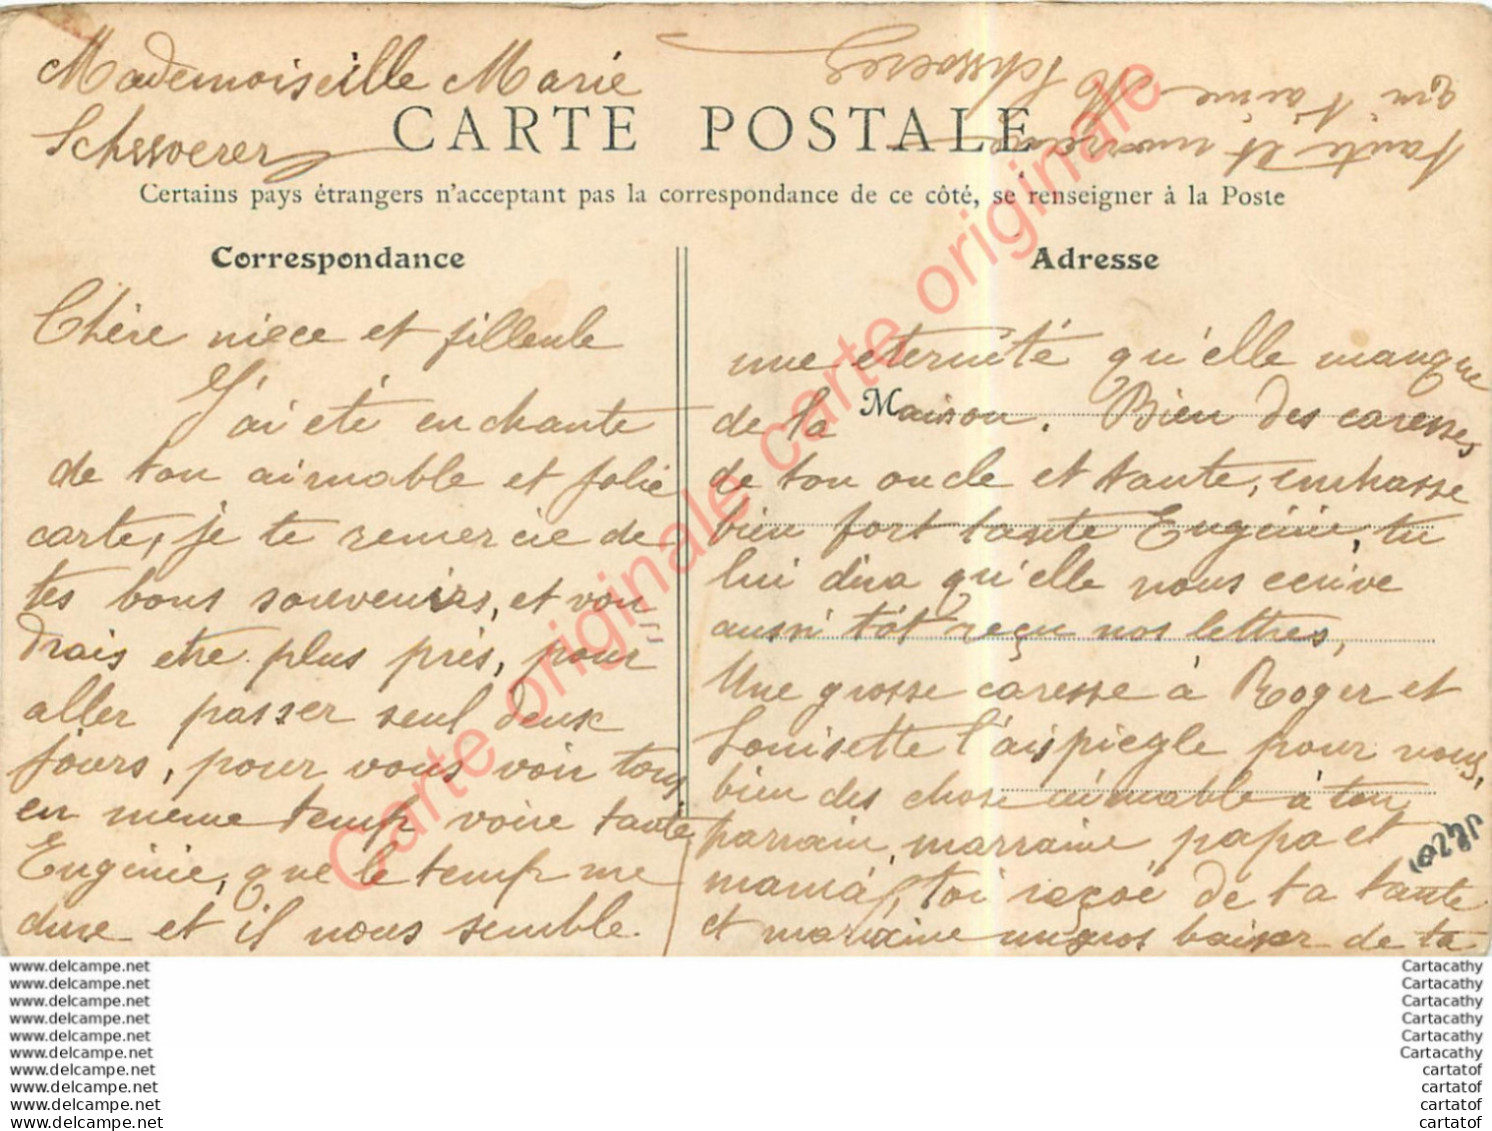 Mademoiselle Marie
Schsverer
CARTE POSTALE
Certains pays étrangers n'acceptent pas la correspondance de ce côté, se renseigner à la Poste
Correspondance
Chère niece et filleule
J'ai été enchante
de ton aimable et jolie
carte, je te remercie de
tes bons souvenirs, et vou
drais etre plus près, pour
aller passer seul deux
jours, pour vous voir tous
en même temps voire tante
Eugénie, que le temps me
dure et il nous semble.
Adresse
une eternité qu'elle manque
de la Maison. Bien des caresses
de ton oncle et tante, embrasse
bien fort tante Eugénie, tu
lui dira qu'elle nous ecrive
aussi tôt reçu nos lettres,
Une grosse caresse à Roger et
Louisette l'aispiegle pour vous,
bien des chose aimable à ton
parrain, marraine papa et
mama, toi reçoé de ta tante
et marraine un gros baiser de ta
tante et marraine
qui t'aime M
Schsverer
Carte originale carte originale carte originale
www.delcampe.net
www.delcampe.net
www.delcampe.net
www.delcampe.net
www.delcampe.net
www.delcampe.net
www.delcampe.net
www.delcampe.net
www.delcampe.net
www.delcampe.net
Cartacathy
Cartacathy
Cartacathy
Cartacathy
Cartacathy
Cartacathy
cartatof
cartatof
cartatof
cartatof